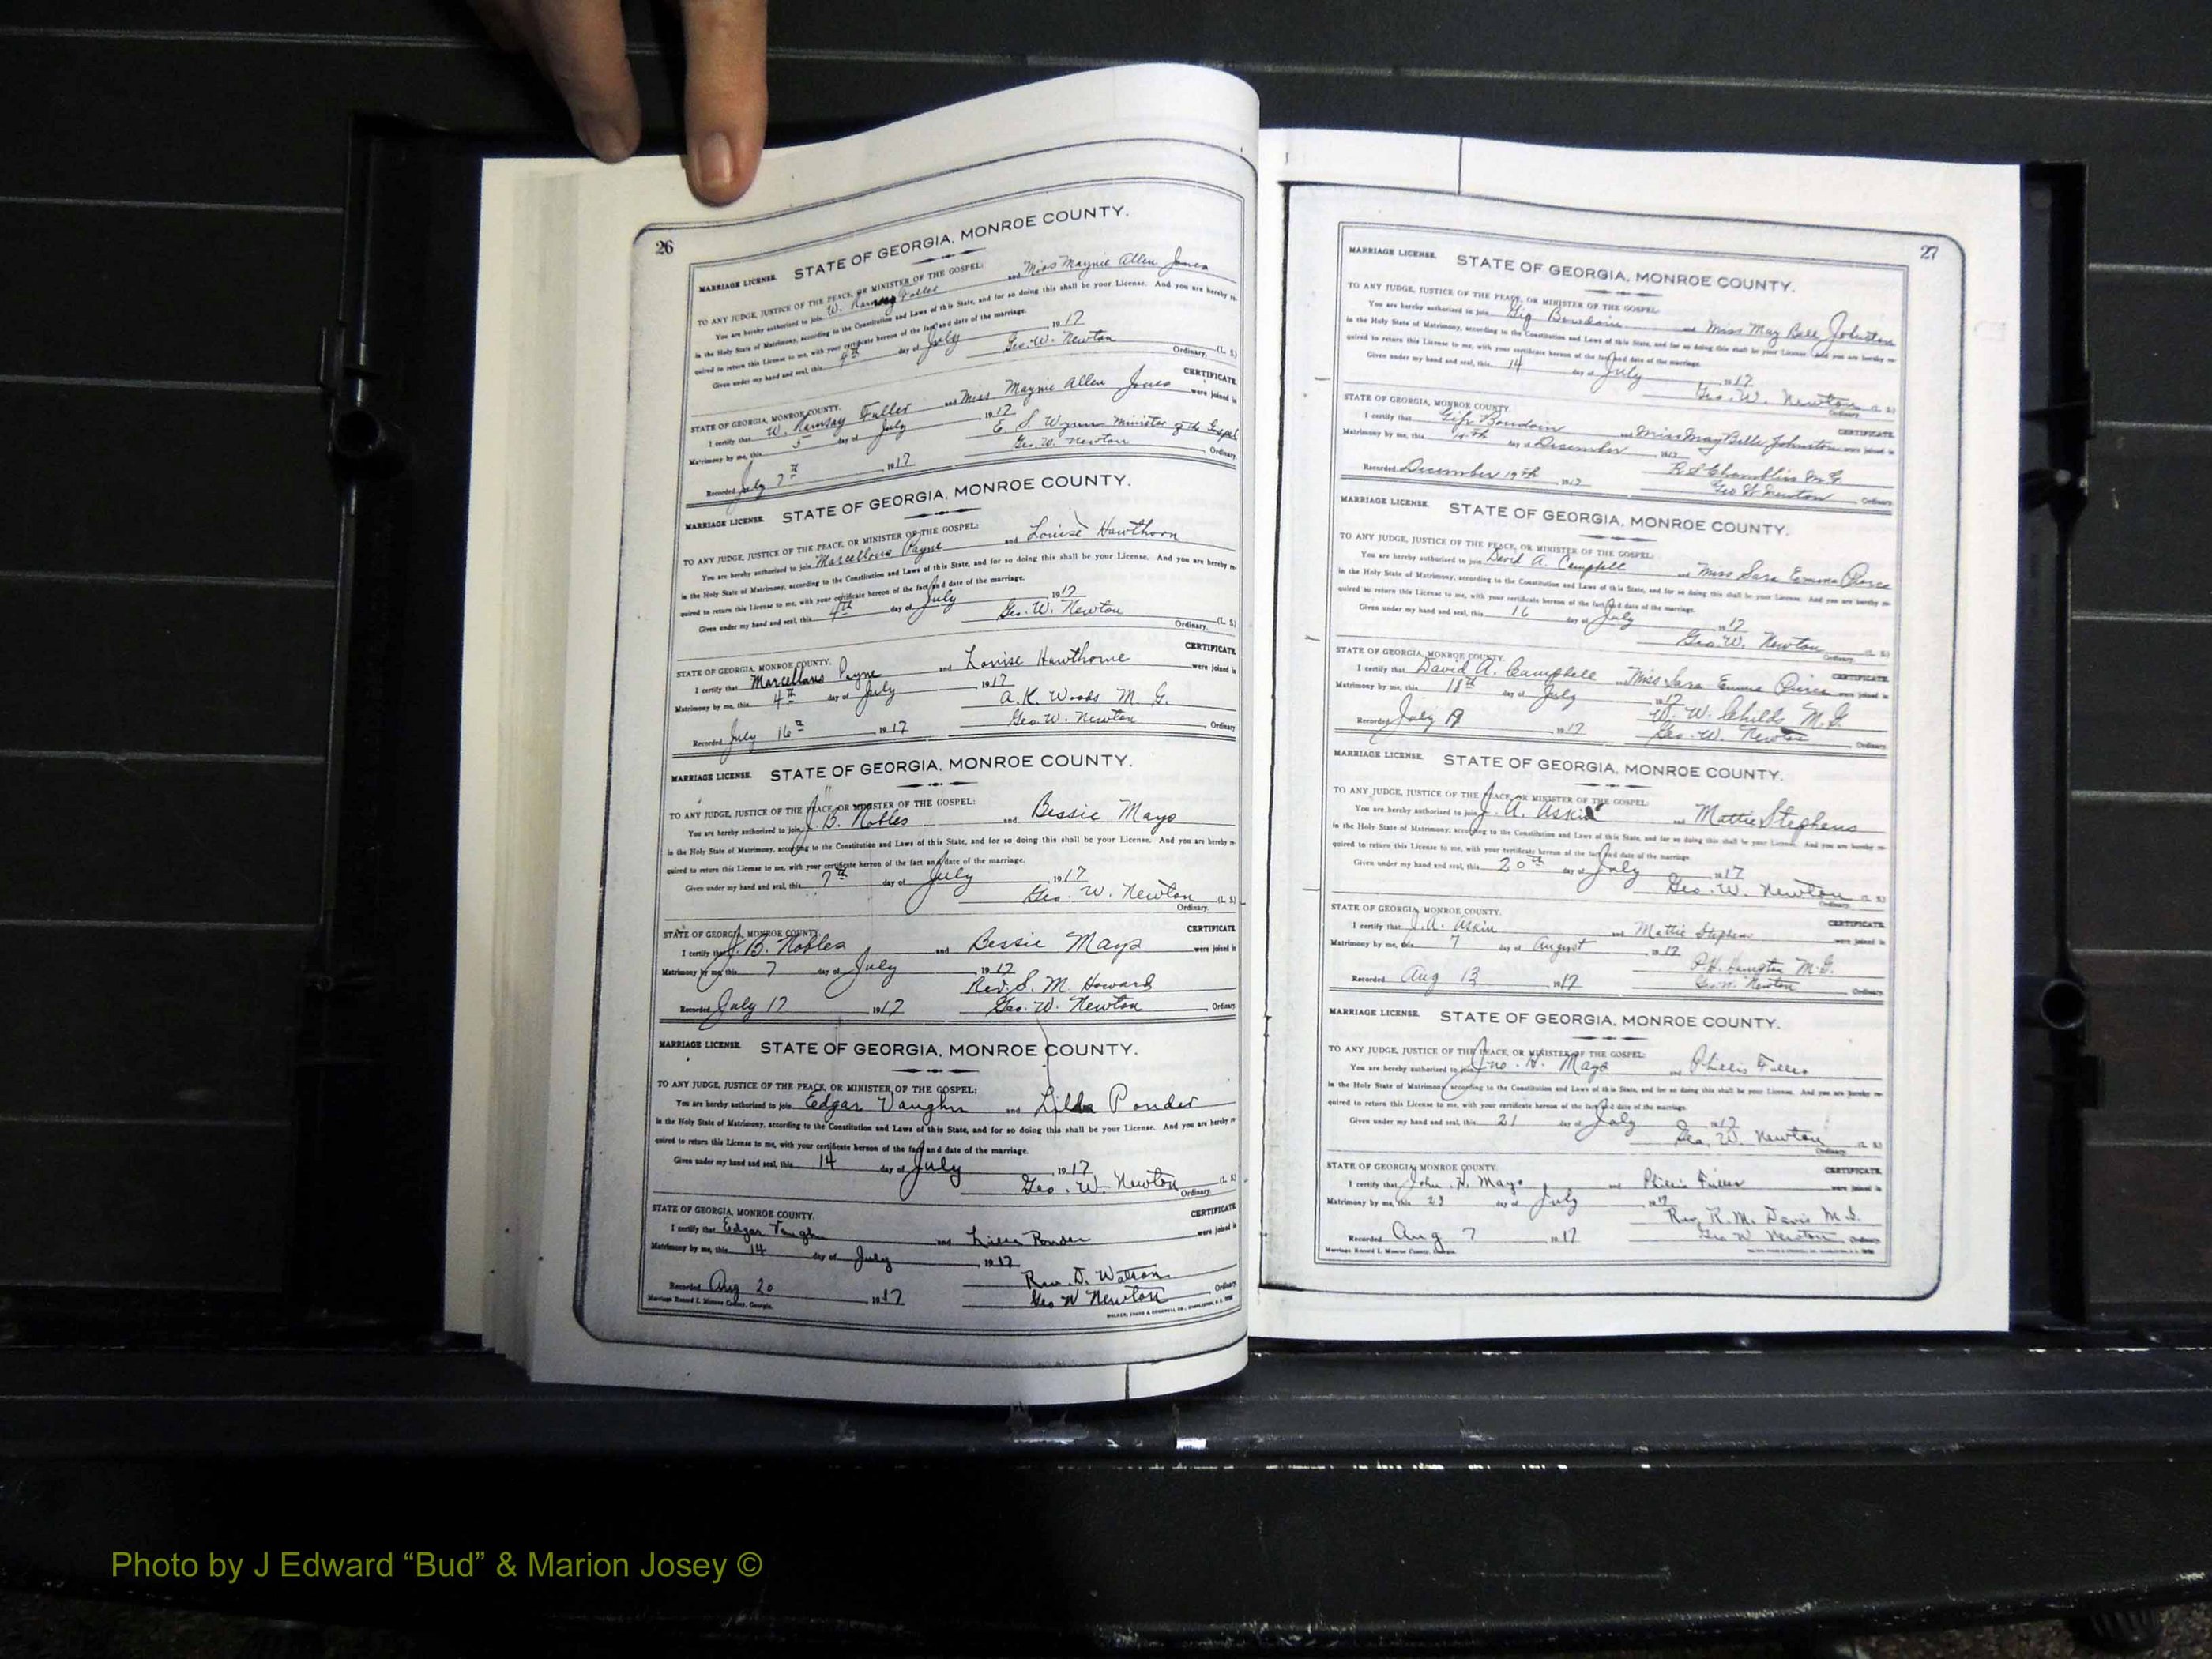 26
STATE OF GEORGIA, MONROE COUNTY.
MARRIAGE LICENSE.
TO ANY JUDGE, JUSTICE OF THE PEACE, OR MINISTER OF THE GOSPEL:
You are hereby authorized to join W. Ramsay Fuller and Miss Maynie Allen Jones
in the Holy State of Matrimony, according to the Constitution and Laws of this State, and for so doing this shall be your License. And you are hereby re-
quired to return this License to me, with your certificate hereon of the fact and date of the marriage.
Given under my hand and seal, this 4th day of July 1917
Geo. W. Newton (L. S.)
Ordinary.
STATE OF GEORGIA, MONROE COUNTY. CERTIFICATE.
I certify that W. Ramsay Fuller and Miss Maynie Allen Jones were joined in
Matrimony by me, this 5 day of July 1917
E. S. Wynn Minister of the Gospel
Recorded July 7th 1917 Geo. W. Newton Ordinary.
MARRIAGE LICENSE. STATE OF GEORGIA, MONROE COUNTY.
TO ANY JUDGE, JUSTICE OF THE PEACE, OR MINISTER OF THE GOSPEL:
You are hereby authorized to join Marcellous Payne and Louise Hawthorn
in the Holy State of Matrimony, according to the Constitution and Laws of this State, and for so doing this shall be your License. And you are hereby re-
quired to return this License to me, with your certificate hereon of the fact and date of the marriage.
Given under my hand and seal, this 4th day of July 1917
Geo. W. Newton (L. S.)
Ordinary.
STATE OF GEORGIA, MONROE COUNTY. CERTIFICATE.
I certify that Marcellous Payne and Louise Hawthorne were joined in
Matrimony by me, this 4th day of July 1917
A. K. Woods M. G.
Recorded July 16th 1917 Geo. W. Newton Ordinary.
MARRIAGE LICENSE. STATE OF GEORGIA, MONROE COUNTY.
TO ANY JUDGE, JUSTICE OF THE PEACE, OR MINISTER OF THE GOSPEL:
You are hereby authorized to join J. B. Nobles and Bessie Mays
in the Holy State of Matrimony, according to the Constitution and Laws of this State, and for so doing this shall be your License. And you are hereby re-
quired to return this License to me, with your certificate hereon of the fact and date of the marriage.
Given under my hand and seal, this 7th day of July 1917
Geo. W. Newton (L. S.)
Ordinary.
STATE OF GEORGIA, MONROE COUNTY. CERTIFICATE.
I certify that J. B. Nobles and Bessie Mays were joined in
Matrimony by me, this 7 day of July 1917
Rev. S. M. Howard
Recorded July 17 1917 Geo. W. Newton Ordinary.
MARRIAGE LICENSE. STATE OF GEORGIA, MONROE COUNTY.
TO ANY JUDGE, JUSTICE OF THE PEACE, OR MINISTER OF THE GOSPEL:
You are hereby authorized to join Edgar Vaughn and Lilla Ponder
in the Holy State of Matrimony, according to the Constitution and Laws of this State, and for so doing this shall be your License. And you are hereby re-
quired to return this License to me, with your certificate hereon of the fact and date of the marriage.
Given under my hand and seal, this 14 day of July 1917
Geo. W. Newton (L. S.)
Ordinary.
STATE OF GEORGIA, MONROE COUNTY. CERTIFICATE.
I certify that Edgar Vaughn and Ponder were joined in
Matrimony by me, this 14 day of July 1917
Rev. D. Watson
Recorded Aug 20 1917 Geo W Newton Ordinary.
Marriage Record L Monroe County, Georgia.
27
MARRIAGE LICENSE. STATE OF GEORGIA, MONROE COUNTY.
TO ANY JUDGE, JUSTICE OF THE PEACE, OR MINISTER OF THE GOSPEL:
You are hereby authorized to join and Miss May Bell Johnston
in the Holy State of Matrimony, according to the Constitution and Laws of this State, and for so doing this shall be your License. And you are hereby re-
quired to return this License to me, with your certificate hereon of the fact and date of the marriage.
Given under my hand and seal, this 14 day of July 1917
Geo. W. Newton (L. S.)
Ordinary.
STATE OF GEORGIA, MONROE COUNTY. CERTIFICATE.
I certify that and Miss May Belle Johnston were joined in
Matrimony by me, this 14th day of December 1917
Chamblin M G
Recorded December 19th 1917 Geo W Newton Ordinary.
MARRIAGE LICENSE. STATE OF GEORGIA, MONROE COUNTY.
TO ANY JUDGE, JUSTICE OF THE PEACE, OR MINISTER OF THE GOSPEL:
You are hereby authorized to join David A. Campbell and Miss Sara Emma Pierce
in the Holy State of Matrimony, according to the Constitution and Laws of this State, and for so doing this shall be your License. And you are hereby re-
quired to return this License to me, with your certificate hereon of the fact and date of the marriage.
Given under my hand and seal, this 16 day of July 1917
Geo. W. Newton (L. S.)
Ordinary.
STATE OF GEORGIA, MONROE COUNTY. CERTIFICATE.
I certify that David A. Campbell and Miss Sara Emma Pierce were joined in
Matrimony by me, this 18th day of July 1917
W. W. Childs M. G.
Recorded July 19 1917 Geo. W. Newton Ordinary.
MARRIAGE LICENSE. STATE OF GEORGIA, MONROE COUNTY.
TO ANY JUDGE, JUSTICE OF THE PEACE, OR MINISTER OF THE GOSPEL:
You are hereby authorized to join J. A. Askin and Mattie Stephens
in the Holy State of Matrimony, according to the Constitution and Laws of this State, and for so doing this shall be your License. And you are hereby re-
quired to return this License to me, with your certificate hereon of the fact and date of the marriage.
Given under my hand and seal, this 20th day of July 1917
Geo. W. Newton (L. S.)
Ordinary.
STATE OF GEORGIA, MONROE COUNTY. CERTIFICATE.
I certify that J. A. Askin and Mattie Stephens were joined in
Matrimony by me, this 7 day of August 1917
P. H. M. G.
Recorded Aug 13 1917 Geo. W. Newton Ordinary.
MARRIAGE LICENSE. STATE OF GEORGIA, MONROE COUNTY.
TO ANY JUDGE, JUSTICE OF THE PEACE, OR MINISTER OF THE GOSPEL:
You are hereby authorized to join Jno. H. Mays and Phillis Fuller
in the Holy State of Matrimony, according to the Constitution and Laws of this State, and for so doing this shall be your License. And you are hereby re-
quired to return this License to me, with your certificate hereon of the fact and date of the marriage.
Given under my hand and seal, this 21 day of July 1917
Geo. W. Newton (L. S.)
Ordinary.
STATE OF GEORGIA, MONROE COUNTY. CERTIFICATE.
I certify that John H. Mays and Phillis Fuller were joined in
Matrimony by me, this 23 day of July 1917
Rev. R. M. Davis M. G.
Recorded Aug 7 1917 Geo W Newton Ordinary.
Marriage Record L Monroe County, Georgia.
Photo by J Edward “Bud” & Marion Josey ©